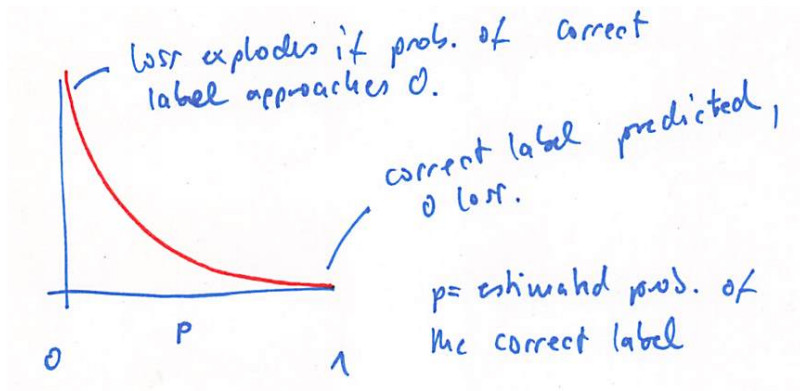 loss explodes if prob. of correct
label approaches 0.
correct label predicted,
0 loss.
p= estimated prob. of
the correct label
P
0 1